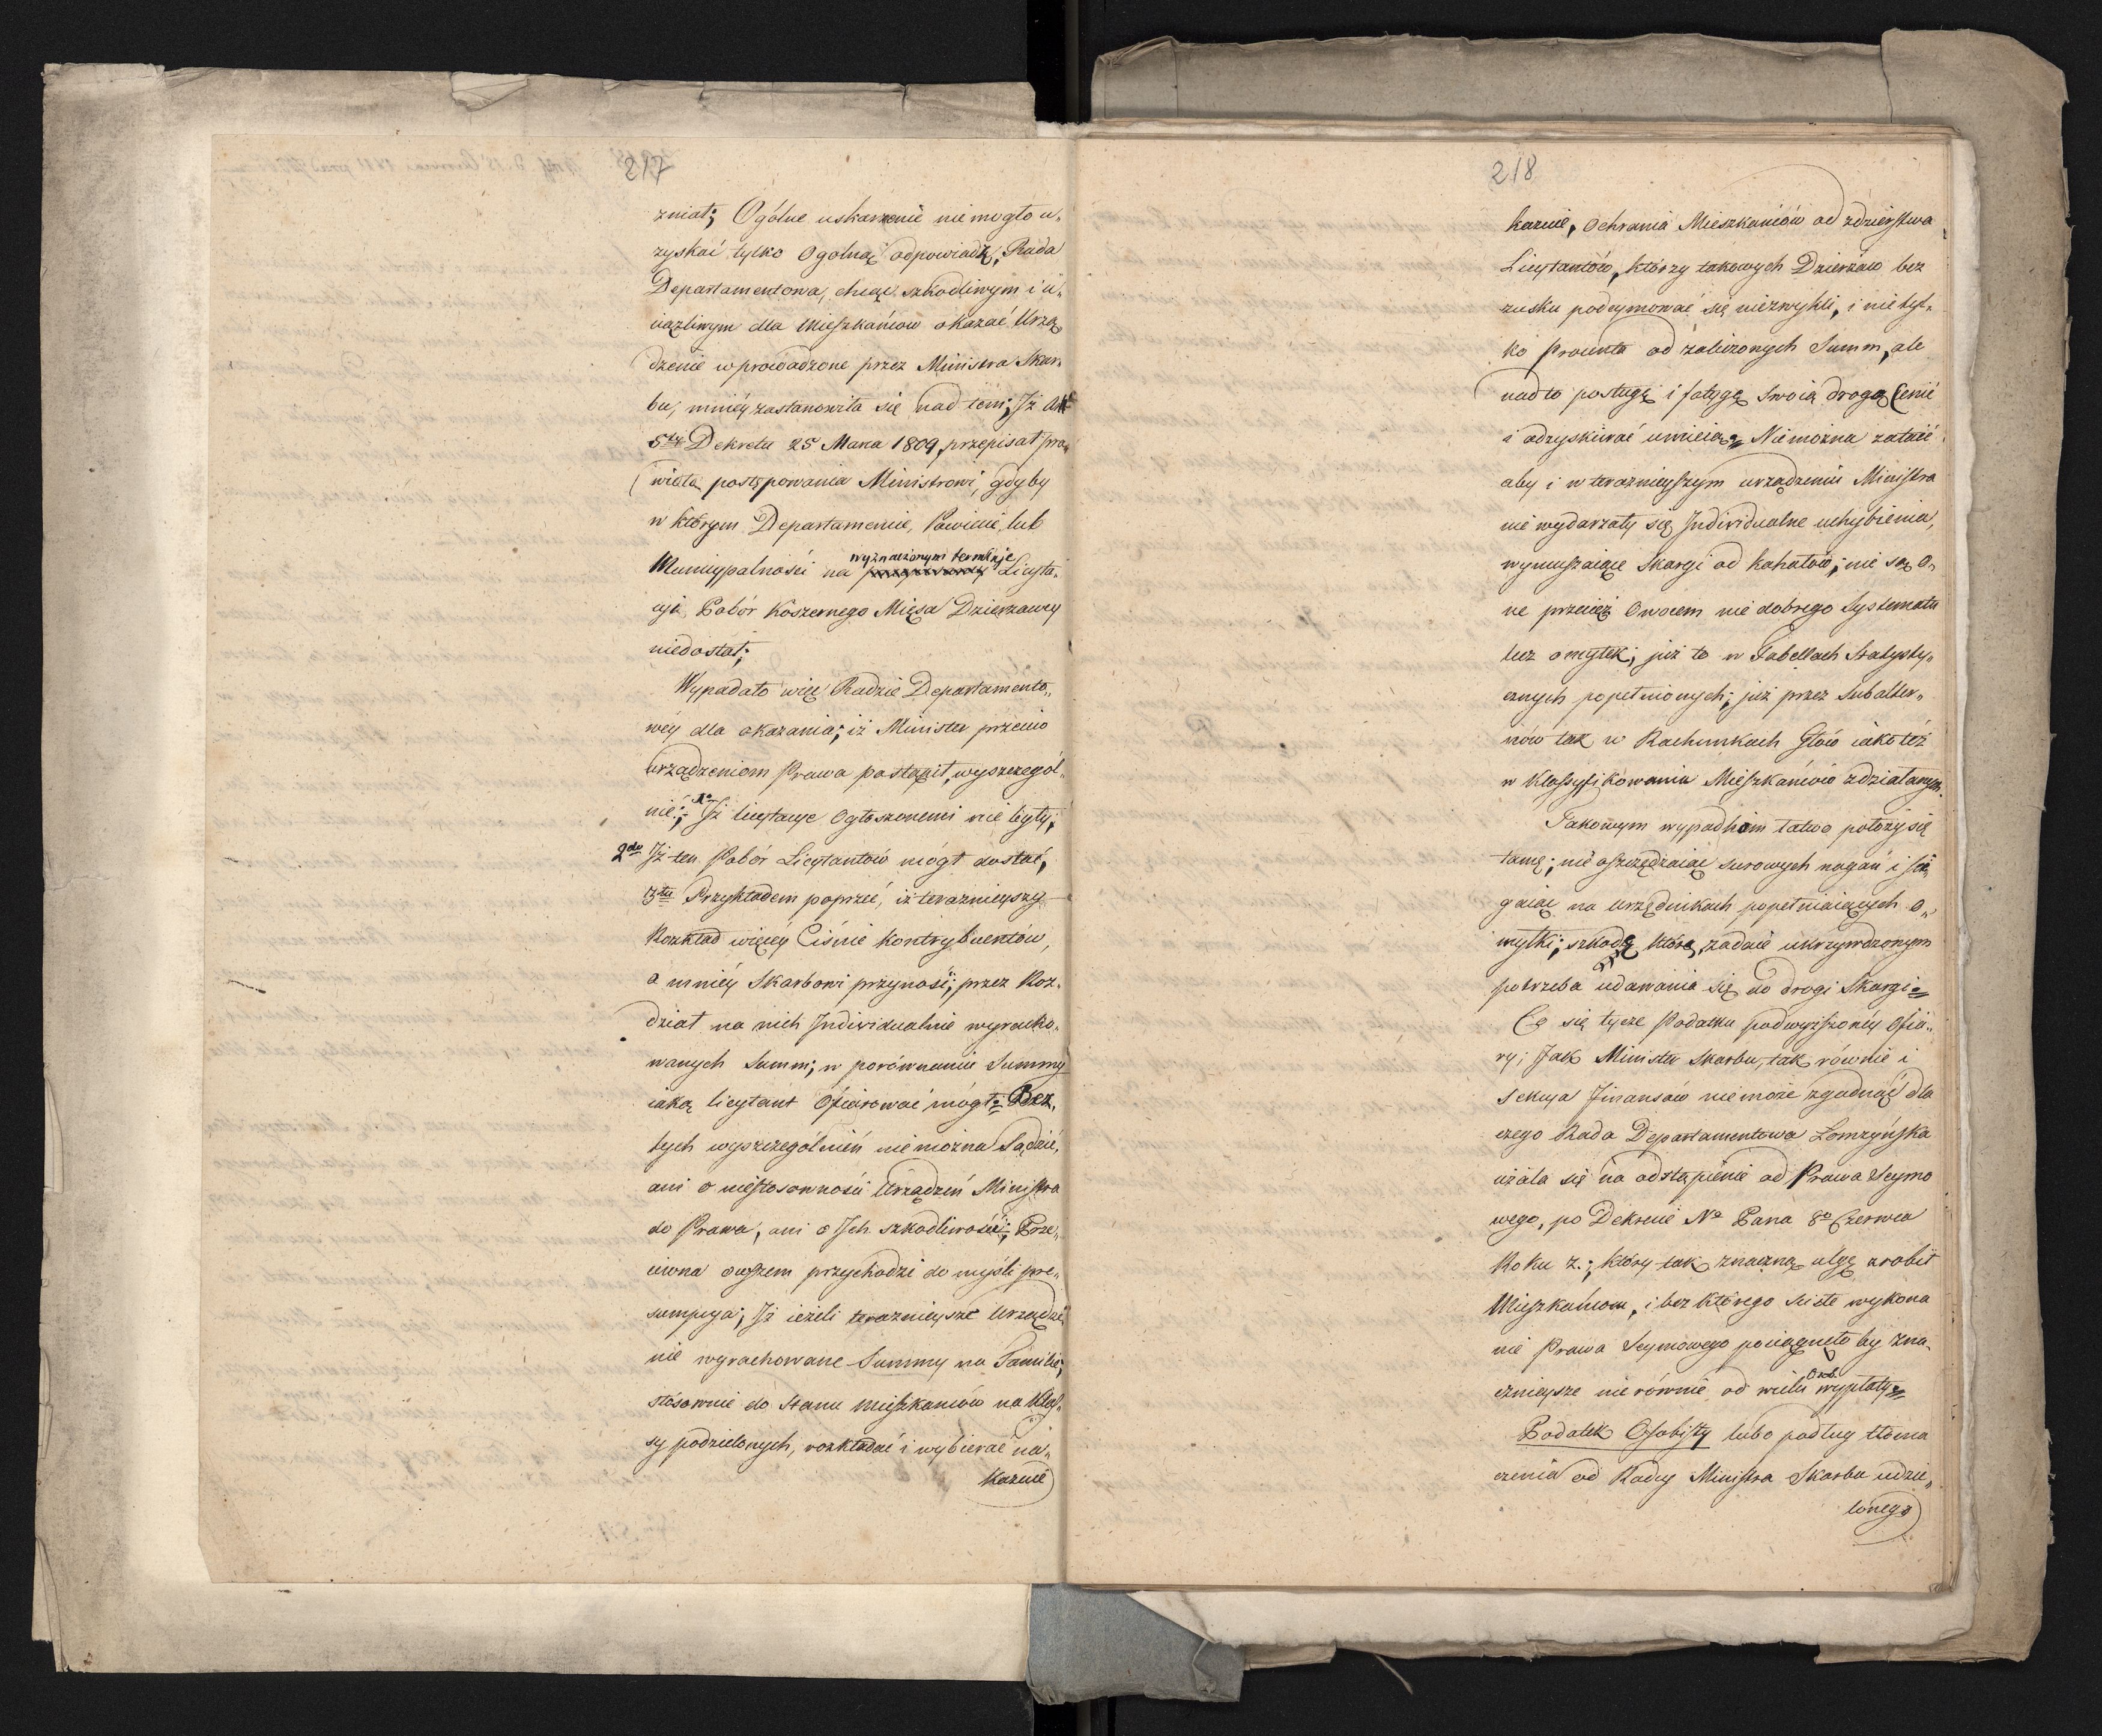 217
zniał; Ogólne uskarzenie nie mogło u„
zyskać tylko Ogolną odpowiadź, Rada
Departamentowa, chcąc szkodliwym i u„
ciążliwym dla Mieszkańcow okazać Urzą„
dzenie wprowadzone przez Ministra Skar„
bu, mniéy zastanowiła się nad tém; Iż Art
5ty Dekretu 25 Marca 1809, przepisał pra„
widła postępowania Ministrowi, gdyby
w którym Departamencie, Powiecie, lub
wyznaczonym terminie
Municypalności na Licyta„
cyi, Pobór Koszernego Mięsa Dzierzawcy
niedostał;
Wypadało więc Radzie Departamento„
wéy dla okazania; iż Minister przeciw
urządzeniom Prawa postąpił, wyszczegól„
nić; 1o Iż licytacye Ogłoszonemi nie były;
2do Iż ten Pobór Licytantów mógł dostać,
3tio Przykładem poprzeć, iż teraznieyszy
Rozkład więcéy Ciśnie kontrybuentów,
a mniéy Skarbowi przynosi; przez Roz„
dział na nich Individualnie wyracho„
wanych Summ; w porównaniu Summy
iaką licytant Ofiarować mógł; Bez
tych wyszczególnień nie można Sądzić,
ani o niestosowności Urządzeń Ministra
do Prawa, ani o Ich szkodliwości; Prze„
ciwna owszem przychodzi do myśli pre„
sumpcya; Iż ieżeli teraznieysze Urządze
nie wyrachowane Summy na Familie,
stósownie do Stanu mieszkańców na Klas„
sy podzielonych, rozkładać i wybierać na„
kazuie
218
kazuie, Ochrania Mieszkańców od zdzierstwa
Licytantów, którzy takowych Dzierżaw bez
zysku podeymować się niezwykli, i nie tyl„
ko Procenta od zaliczonych Summ, ale
nadto posługę i fatygę Swoią drogo Cenić
i odzyskiwać umieią; Niemożna zataić
aby i w teraznieyszym urządzeniu Ministra
nie wydarzały się Individualne uchybienia,
wymuszaiące Skargi od kahałów; nie są O„
ne przecież Owocem nie dobrego Systematu
lecz omyłek; już to w Tabellach Statysty„
cznych popełnionych; już przez Subalter„
nów tak w Rachunkach Głów iako też
w Klassyfikowaniu Mieszkańców zdziałanych.
Takowym wypadkom łatwo położy się
tamę; nie oszczędzaiąc surowych nagan i ścią
gaiąc na Urzędnikach popełniaiących O„
myłki; szkodę którą zadaie ukrzywdzonym
potrzeba udawania się do drogi Skargi;
Co się tycze Podatku podwyższonéy Ofia„
ry; Jak Minister Skarbu, tak równie i
Sekcya Finansów nie może zgadnąć dla
czego Rada Departamentowa Łomzyńska
użala się na odstąpienie od Prawa Seymo
wego, po Dekrecie No Pana 8o Czerwca
Roku z.; który tak znaczną ulgę zrobił
Mieszkańcom, i bez którego ścisłe wykona
nie Prawa Seymowego pociągnęło by zna„
cznieysze nierównie od wielu Osób wypłaty;
Podatek Osobisty lubo podług tłóma
czenia od Rady Ministra Skarbu udzie„
lonego